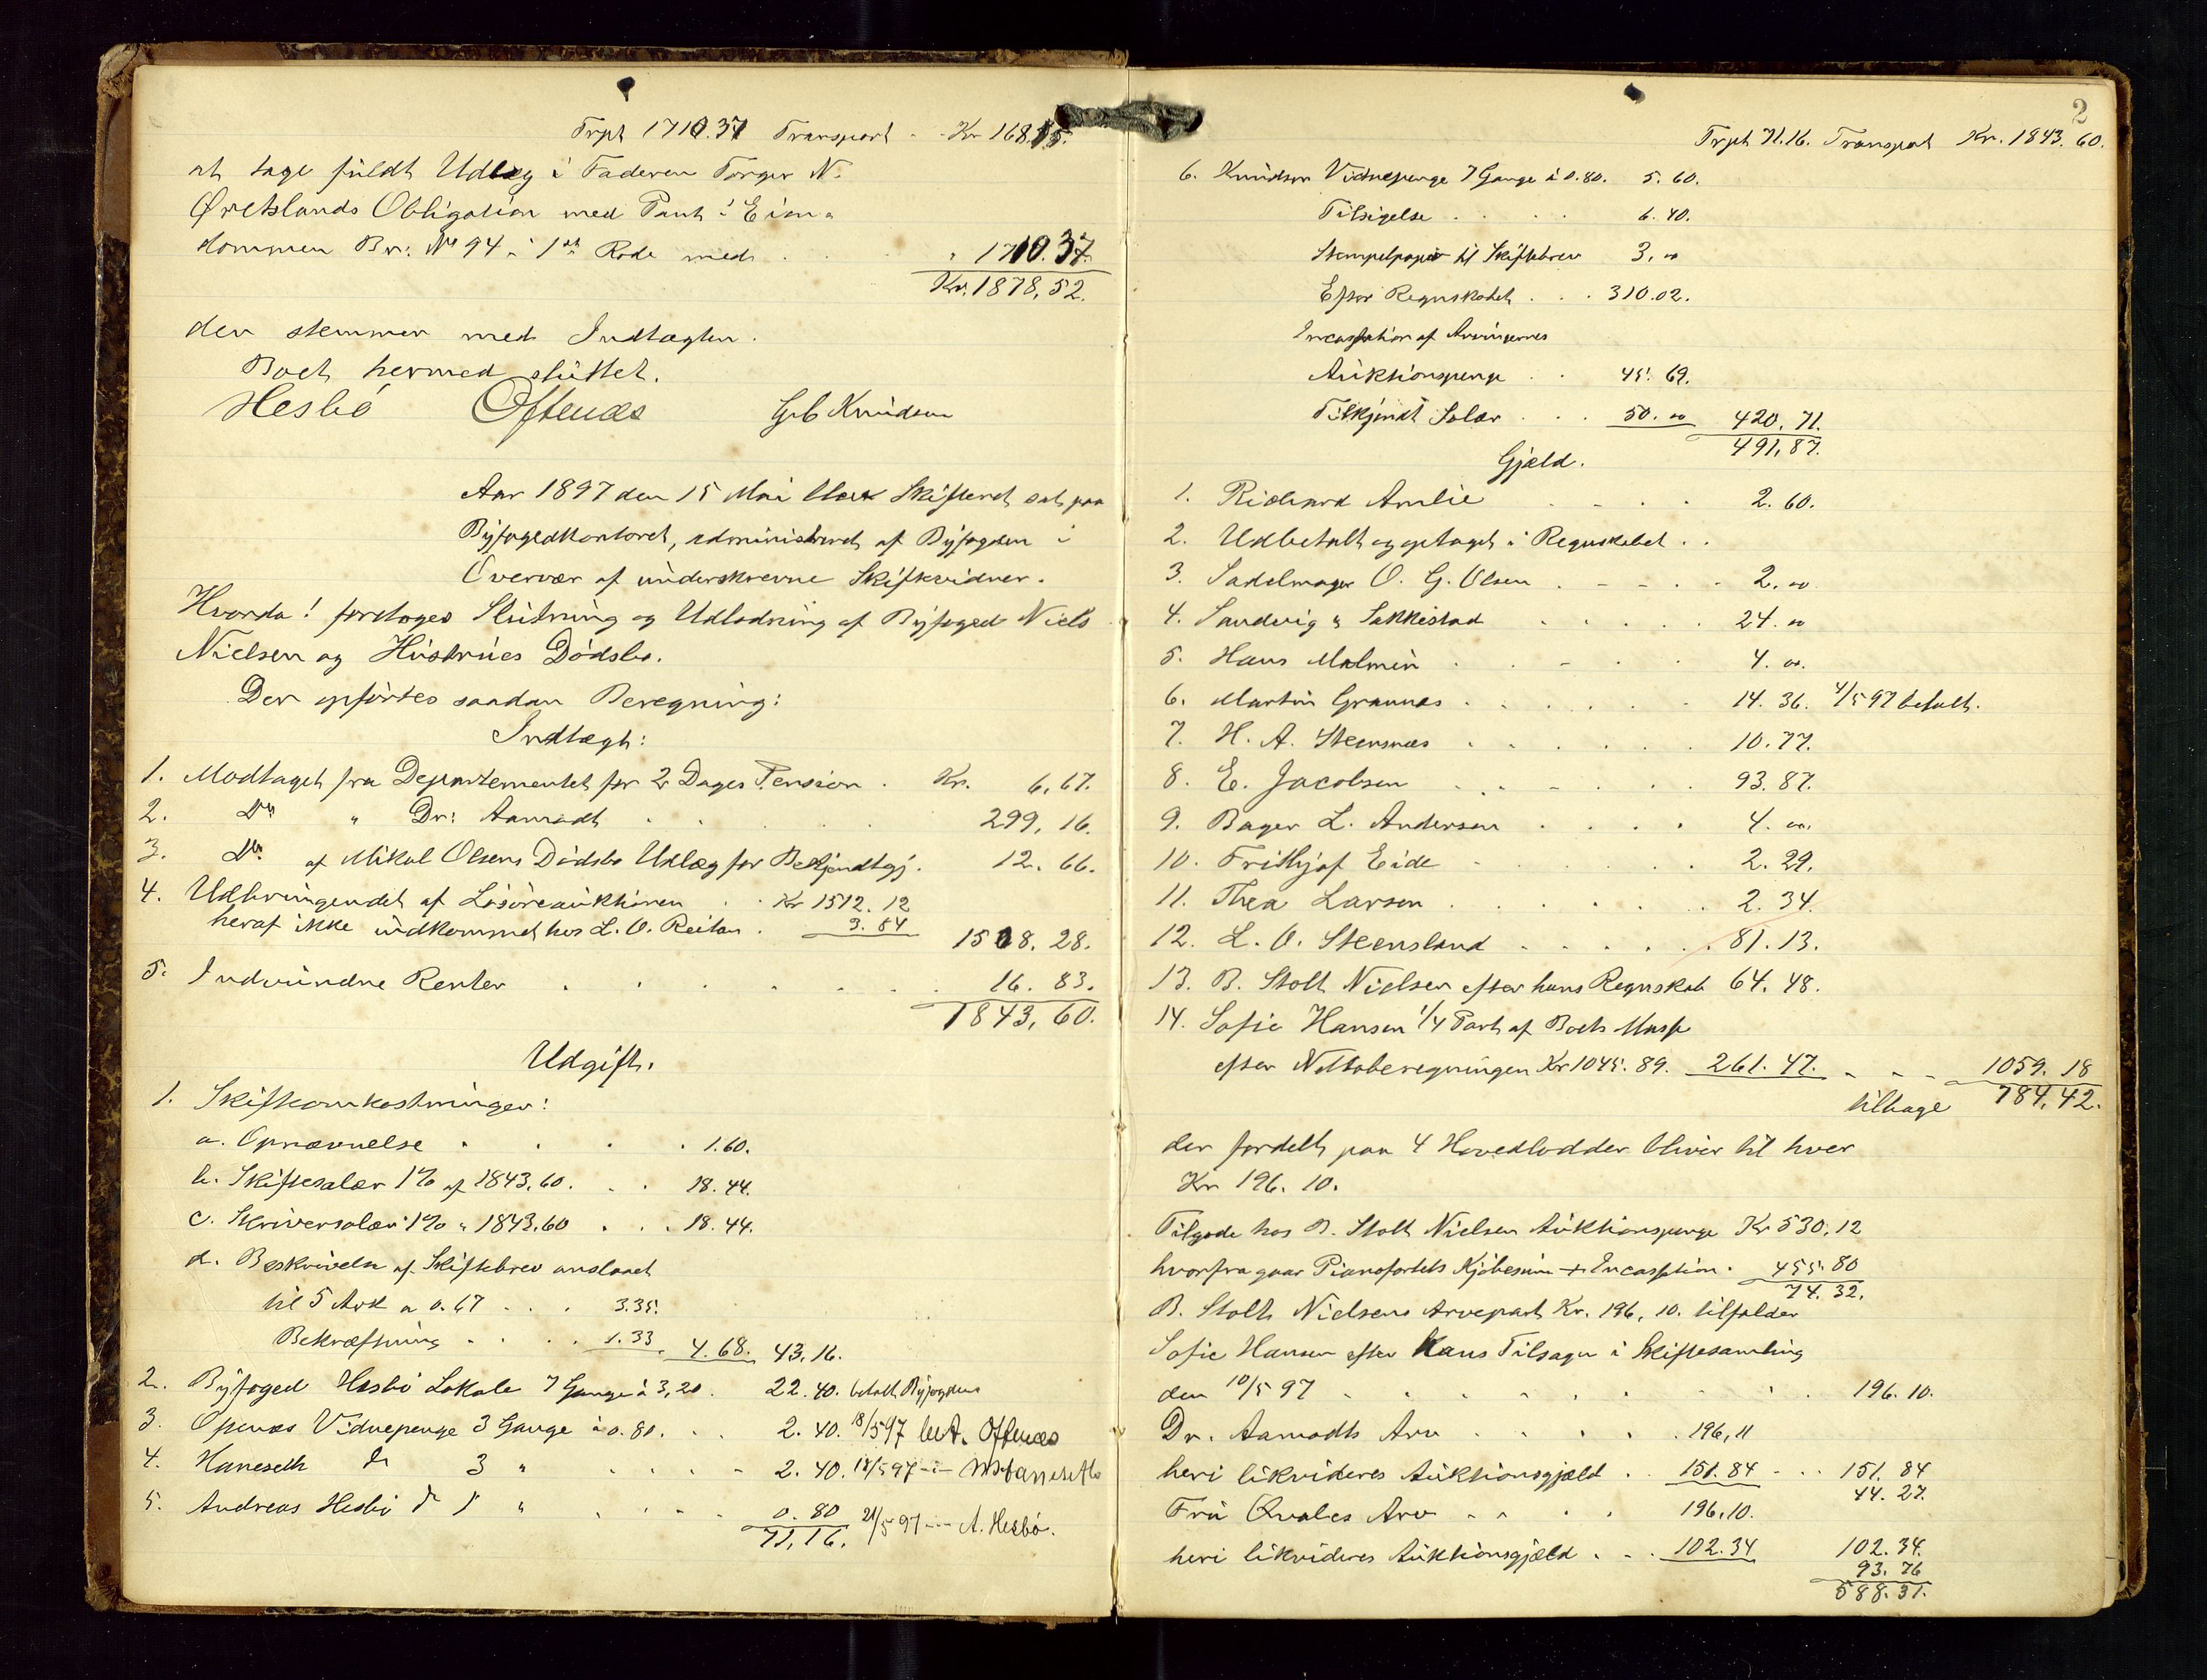 Trpt 1710.37 Transport - - Kr 168.15.
at tage fuldt Udlæg i Faderen Torger N.
Øretslands Obligation med Pant i Eien-
dommen Br: No 94 i 1ste Rode med . . . " 1710.37.
Kr. 1878,52.
der stemmer med Indtægten.
Boet hermed sluttet.
Hesbö Oftenæs Knudsen
Aar 1897 den 15 Mai blev Skifteret sat paa
Byfogedkontoret, administreret af Byfogden i
Overvær af underskrevne Skiftevidner.
Hvorda! foretoges Slutning og Udlodning af Byfoged Niels
Nielsen og Hustrues Dödsbo.
Der opförtes saadan Beregning:
Indtægt:
1. Modtaget fra Departementet for 2 Dages Pension . Kr. 6,67.
2. Do " Dr: Aamodt . . . . 299,16.
3. Do. af Mikal Olsens Dödsbo Udlæg for Bekjendtgj. 12.66.
4. Udbringendet af Lösöreauktionen . . Kr 1512.12
heraf ikke indkommet hos L. O. Reitan . 3.84
1508.28.
5. Indvundne Renter . . . . . . 16.83.
1843,60.
Udgift.
1. Skifteomkostninger:
a. Opnævnelse . . . . 1.60.
b. Skiftesalær 1% af 1843,60. . . 18.44.
c. Skriversalær 1% " 1843,60 . . . 18.44.
d. Beskrivelse af Skiftebrev anslaaet
til 5 Ark a 0.67 . . . 3.35.
Bekræftning . . . . 1.33. 4.68. 43,16.
2. Byfoged Hesbö Lokale 7 Gange á 3,20. 22.40. betalt Byfogden
3. Openæs Vidnepenge 3 Gange á 0.80. . . 2.40. 18/5 97 bet. Oftenæs
4. Haneseth do 3 " . . . . 2.40. 18/5 97 -"- Haneseth
5. Andreas Hesbö do 1 " . . . . 0.80 21/5 97 --- A. Hesbö.
71,16.
2
Trpt 71.16. Transport Kr. 1843.60.
6. Knudsen Vidnepenge 7 Gange á 0.80. 5.60.
Tilsigelse . . . . 6.40.
Stempelpapir til Skiftebrev 3.00
Efter Regnskabet . . . 310.02.
Incassation af Arvingernes
Auktionspenge . . 45.69.
Tilkjendt Salær . . . 50.00 420.71.
491,87.
Gjæld.
1. Richard Amlie . . . . 2.60.
2. Udbetalt og optaget i Regnskabet . .
3. Sadelmager O. G. Olsen . - - . - 2.00
4. Sandvig & Sakkestad . . . . . 24.00
5. Hans Malmin . . - . . 4.00.
6. Martin Grannæs . . . . . . 14.36. 4/5 97 betalt.
7. H. A. Steensnæs . . . . . . 10.77.
8. E. Jacobsen . . . . . . 93.87.
9. Bager L. Andersen . . . . 4.00.
10. Frithjof Eide . . . . . 2.29.
11. Thea Larsen . . . . . . 2.34.
12. L. O. Steensland . . . . . 81.13.
13. B. Stolt Nielsen efter hans Regnskab 64.48.
14. Sofie Hansen 1/4 Part af Boets Masse
efter Nettoberegningen Kr 1045.89. 261.47. . . . 1059.18
tilbage 784,42.
der fordelt paa 4 Hovedlodder bliver til hver
Kr 196.10.
Tilgode hos B. Stolt Nielsen Auktionspenge Kr 530,12
hvorfra gaar Pianofortets Kjöbesum + Incassation. 455.80
74.32.
B. Stolt Nielsens Arvepart Kr. 196,10. tilfalder
Sofie Hansen efter Hans Tilsagn i Skiftesamling
den 10/5 97 . . . . . . . 196.10.
Dr. Aamodts Arv . . . . . 196,11
heri likvideres Auktionsgjæld . . 151.84 - . . 151.84
44.27.
Fru Qvales Arv - - . . 196,10.
heri likvideres Auktionsgjæld . . . 102.34 102.34.
93.76
588.31.